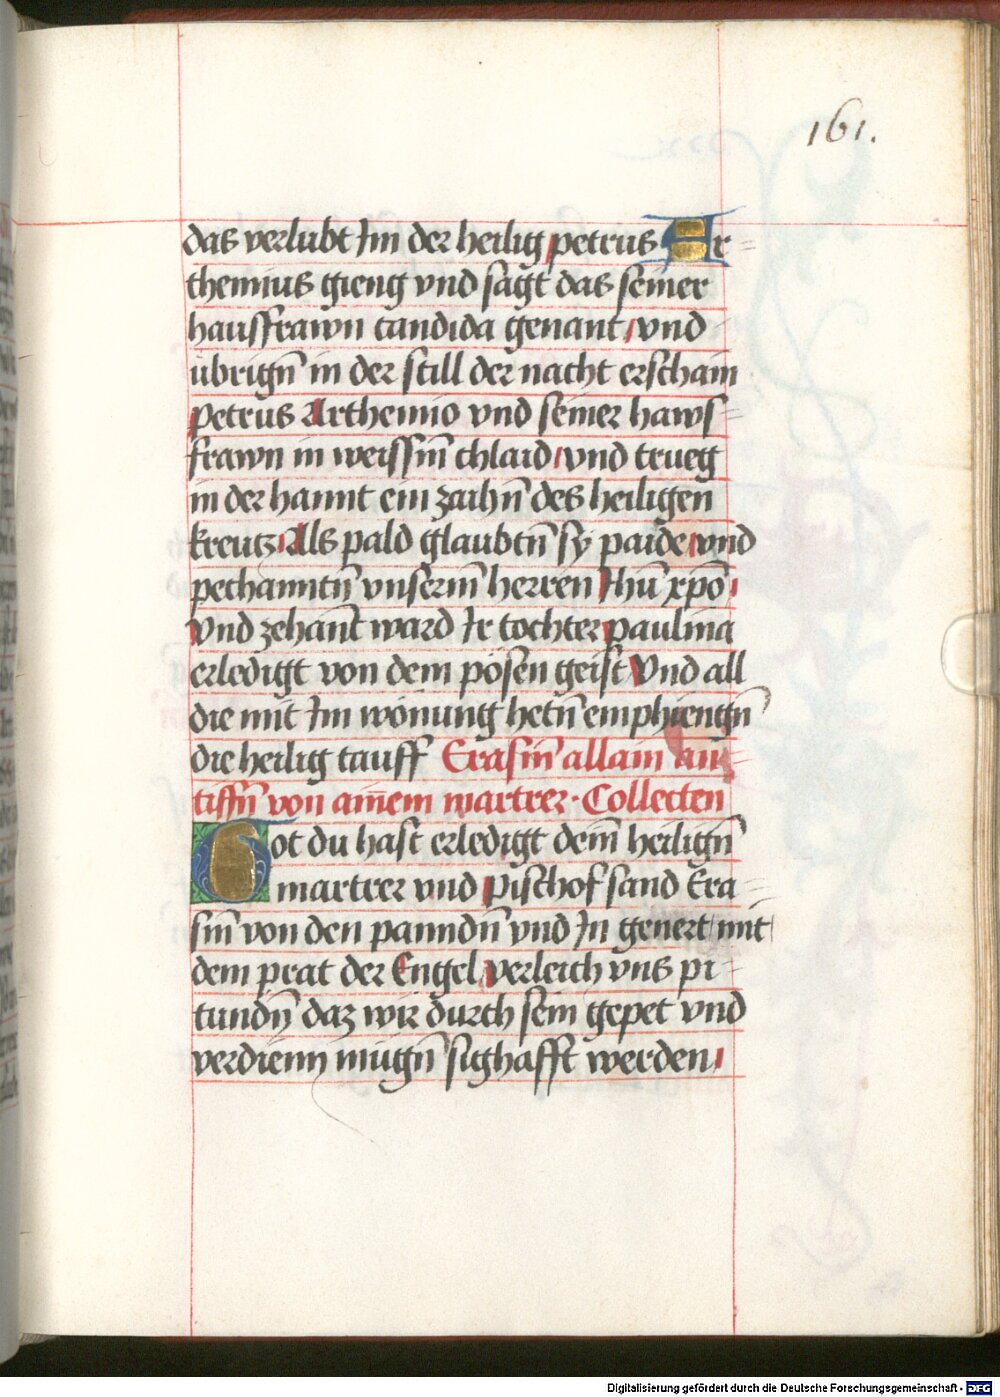 161.
das verlubt Im der heilig petrus Ar=
themius gieng vnd sagt das seiner
hausfrawn candida genant / vnd
übrigñ in der still der nacht erschain
Petrus Arthemio vnd seiner haws=
frawn in weissm̃ chlaid / vnd trueg
in der hannt ein zaihñ des heiligen
kreutz / Als pald glaubtñ sy paide / vnd
pechanntñ vnserm̃ herren Jhũ xp̃o /
Vnd zehañt ward Ir tochter paulina
erledigt von dem pösen geist Vnd all
die mit Im wonung hetñ emphiengñ
die heilig tauff Erasm̃ allain an
tiffñ von aim̃em martrer · Collecten
Got du hast erledigt deim̃ heiligñ
martrer vnd Pischof sand Era=
sm̃ von den panndñ vnd In genert / mit
dem prat der Engel / verleich vns pi=
tundñ daz wir durch sein gepet vnd
verdienn mügñ sighafft werden /
Digitalisierung gefördert durch die Deutsche Forschungsgemeinschaft - DFG